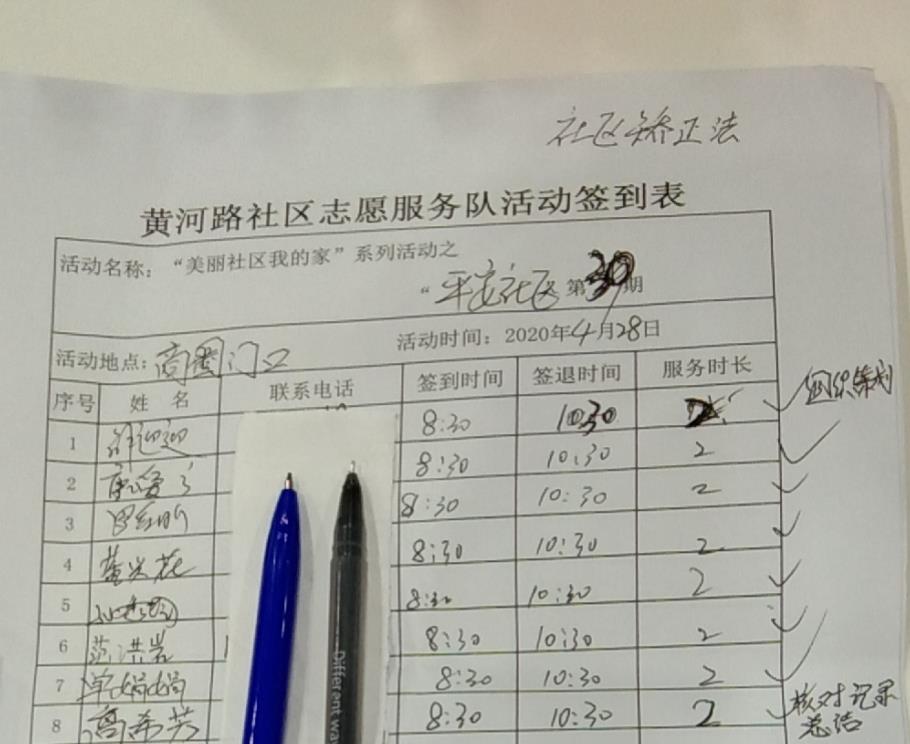 社区矫正法
黄河路社区志愿服务队活动签到表
活动名称："美丽社区我的家"系列活动之
"平安社区 第30期
活动地点：商圈门口 活动时间：2020年4月28日
序号 姓 名 联系电话 签到时间 签退时间 服务时长
组织策划
1 8:30 10:30 2
2 8:30 10:30 2
3 8:30 10:30 2
4 黄米花 8:30 10:30 2
5 8:30 10:30 2
6 范洪岩 8:30 10:30 2
7 娟娟 8:30 10:30 2
8 高希芳 8:30 10:30 2
核对记录
总结
Different wa